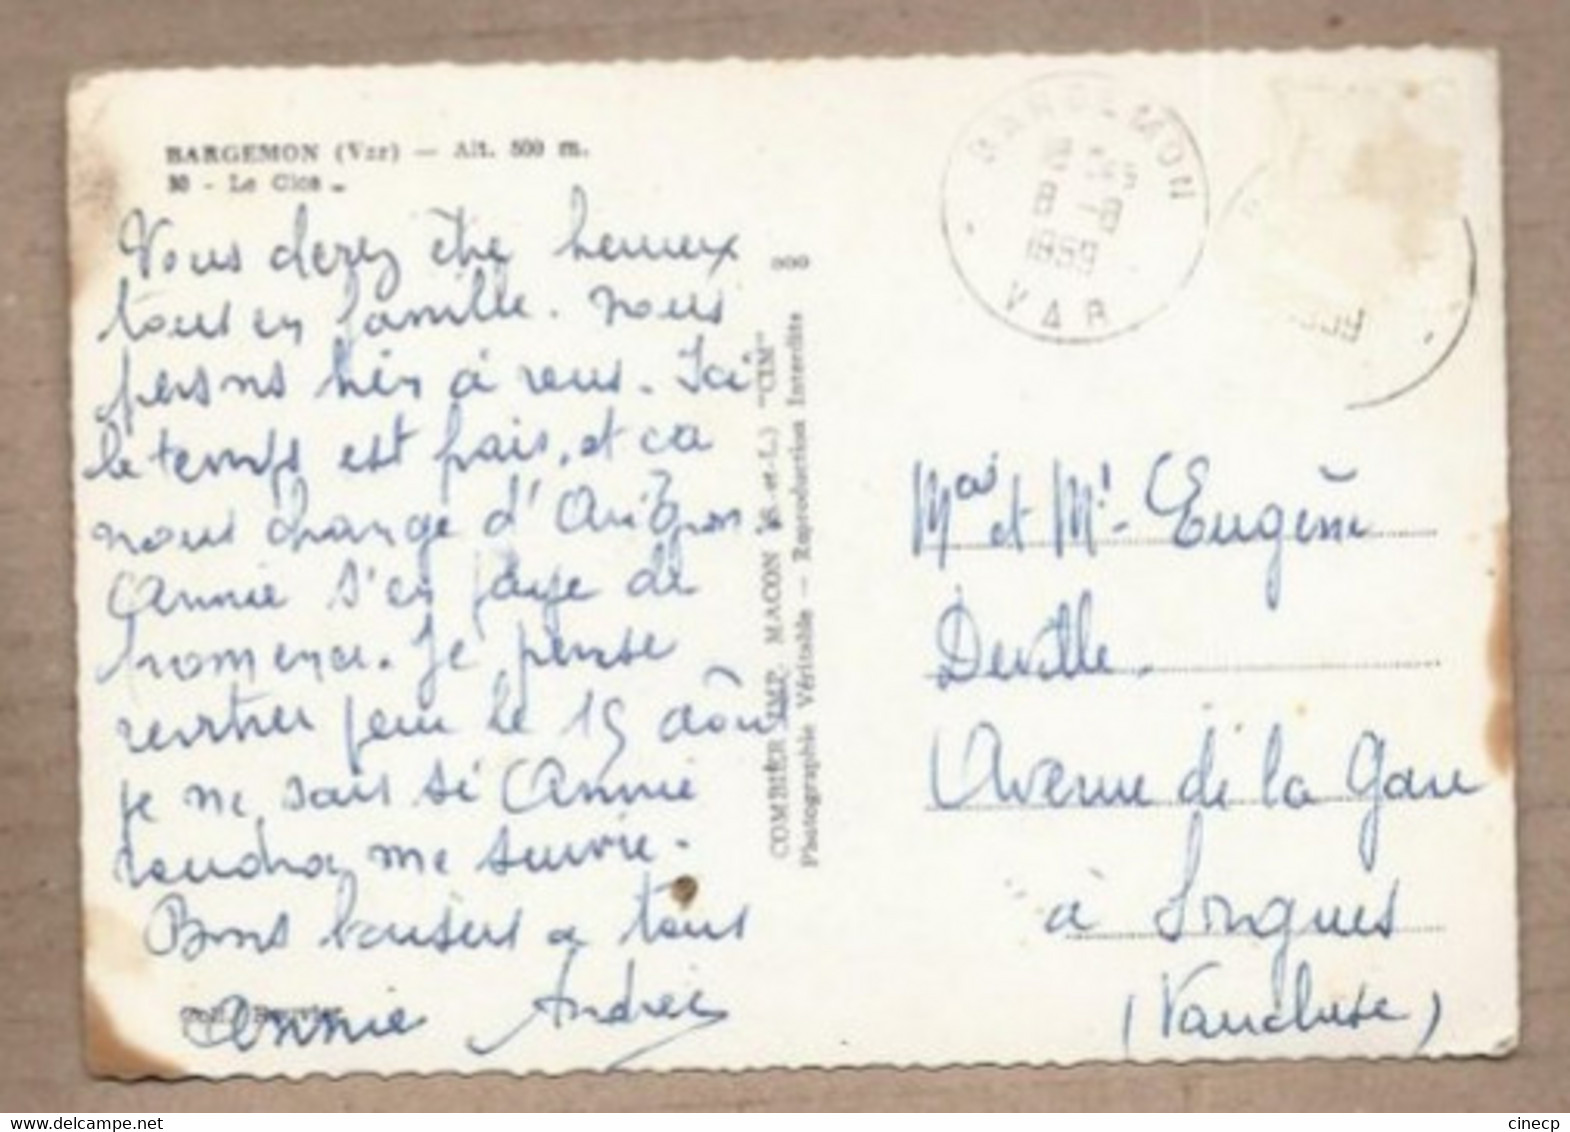 BARGEMON (Var) — Alt. 500 m.
30 - Le Clos
Vous devez être heureux
tous en famille. nous
pensons bien à vous. Ici
le temps est frais, et ca
nous change d'Avignon.
Annie s'en paye de
romena. Je pense
rentrer pour le 15 août
je ne sais si Annie
voudra me suivre.
Bons baisers a tous
Annie Andrée
COMBIER IMP. MACON (S.-et-L.) "CIM"
Photographie Véritable — Reproduction Interdite
BARGEMON
8-8
1959
VAR
1959
Me et Mr Eugène
Deville
Avenue de la Gare
à Sorgues
(Vaucluse)
www.delcampe.net
cinecp